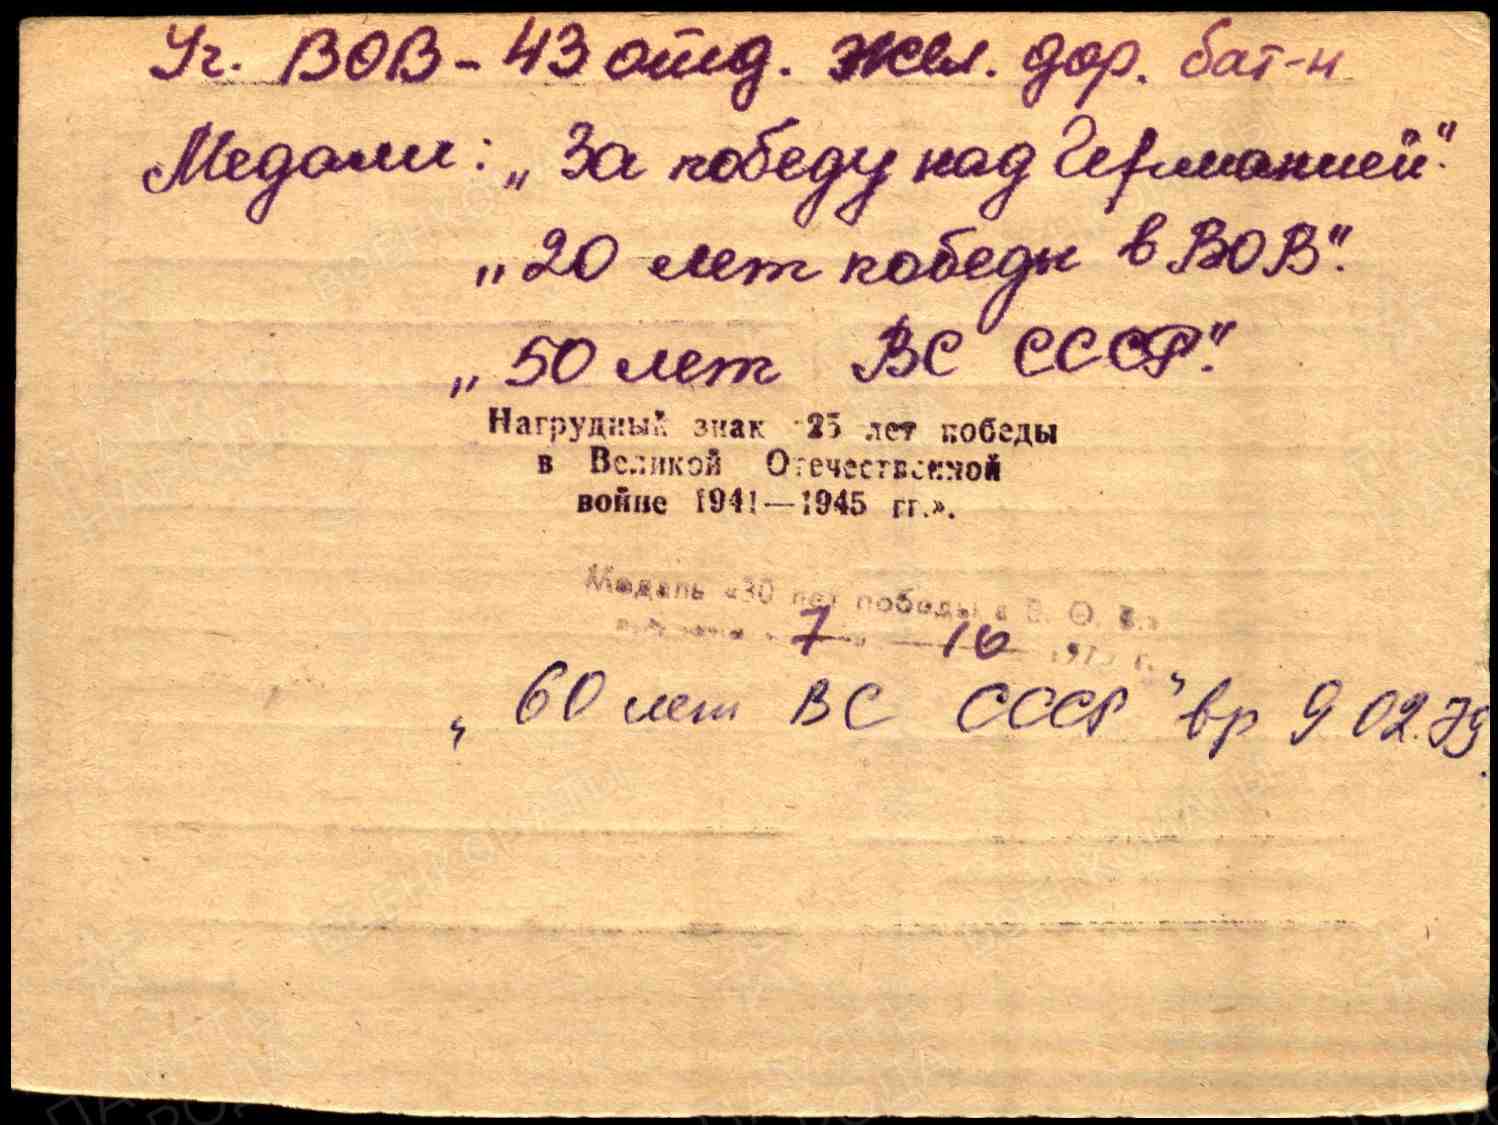 Уч. ВОВ - 43 отд. жел. дор. бат-н
Медали: „За победу над Германией".
„20 лет победы в ВОВ".
„50 лет ВС СССР".
Нагрудный знак «25 лет победы
в Великой Отечественной
войне 1941—1945 гг.».
Медаль «30 лет победы в В. О. В.»
7 10 1975 г.
„60 лет ВС СССР" вр 9 02.79.